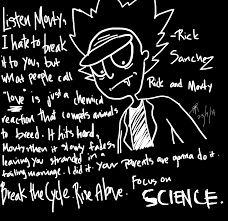 Listen Morty,
I hate to break
it to you, but
what people call
"love" is just a chemical
reaction that compels animals
to breed. It hits hard,
Morty then it slowly fades,
leaving you stranded in a
failing marriage. I did it. Your parents are gonna do it.
Break the Cycle. Rise Above.
Focus on
SCIENCE.
-Rick
Sanchez
Rick and Morty